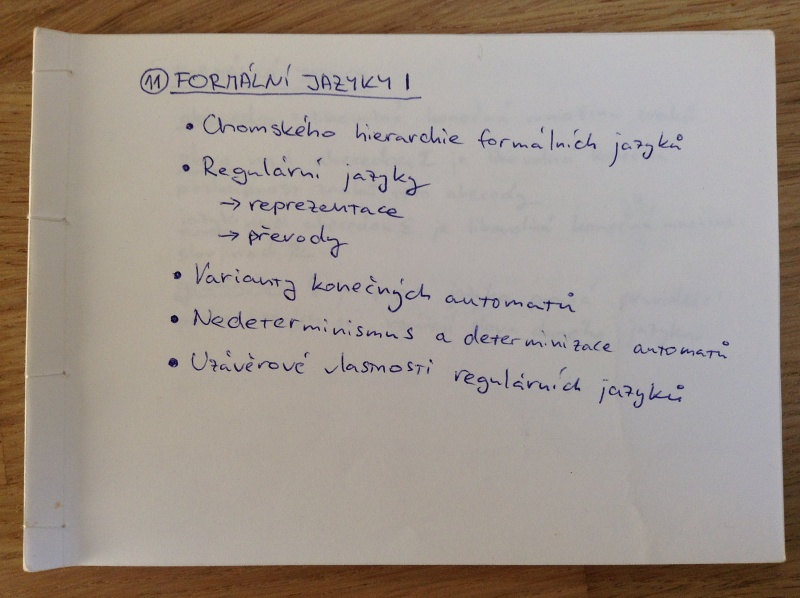 11 FORMÁLNÍ JAZYKY I
• Chomského hierarchie formálních jazyků
• Regulární jazyky
→ reprezentace
→ převody
• Varianty konečných automatů
• Nedeterminismus a determinizace automatů
• Uzávěrové vlastnosti regulárních jazyků